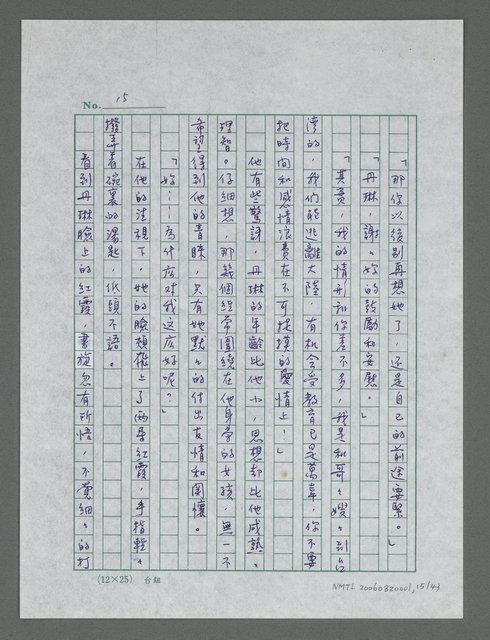 No. 15
「那你以後別再想她了，还是自己的前途要緊。」
「丹琳，謝々妳的鼓勵和安慰。」
「其實，我的情形和你差不多，我是和哥々嫂々到台
湾的，我們能逃離大陸，有机会受教育已是萬幸，你不要
把時间和感情浪費在不可捉摸的愛情上！」
他有些驚訝，丹琳的年齡比他小，思想却比他成熟、
理智。仔細想，那幾個經常圍繞在他身旁的女孩，無一不
希望得到他的青睞，只有她默々的付出友情和関懷。
「妳……為什広対我这広好呢？」
在他的注視下，她的臉頰飛上了两朶紅霞，手指輕々
撥弄着碗裏的湯匙，低頭不語。
看到丹琳臉上的紅霞，書旋忽有所悟，不覚細々的打
(12×25) 台組
NMTL 20060820001, 15/43